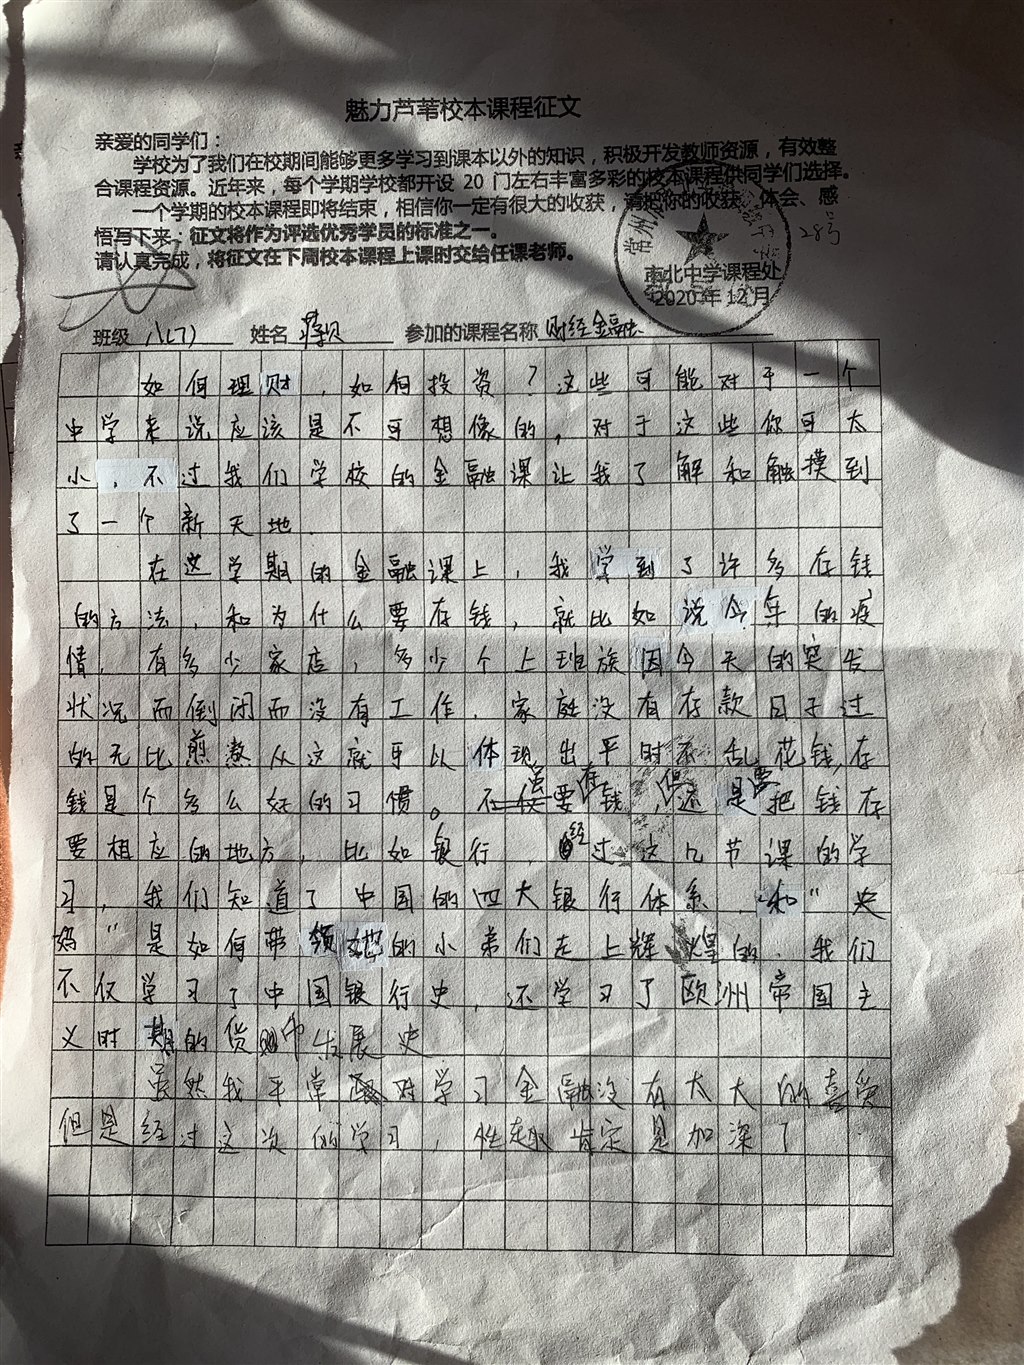 魅力芦苇校本课程征文
亲爱的同学们：
学校为了我们在校期间能够更多学习到课本以外的知识，积极开发教师资源，有效整
合课程资源。近年来，每个学期学校都开设 20 门左右丰富多彩的校本课程供同学们选择。
一个学期的校本课程即将结束，相信你一定有很大的收获，请把你的收获、体会、感
悟写下来；征文将作为评选优秀学员的标准之一。
28号
请认真完成，将征文在下周校本课程上课时交给任课老师。
常州
南北中学课程处
2020 年 12 月
班级 八(7) 姓名 参加的课程名称 财经金融
如何理财，如何投资？这些可能对于一个
中学来说应该是不可想像的，对于这些你可太
小，不过我们学校的金融课让我了解和触摸到
了一个新天地.
在这学期的金融课上，我学到了许多存钱
的方法，和为什么要存钱，就比如说今年的疫
情，有多少家店，多少个上班族因今天的突发
状况而倒闭而没有工作.家庭没有存款日子过
的无比煎熬从这就可以体现出平时不乱花钱,存
钱是个多么好的习惯。虽要存钱，但还是要把钱存
要相应的地方，比如银行，经过这几节课的学
习，我们知道了中国的四大银行体系.和"央
妈"是如何带领她的小弟们走上辉煌的.我们
不仅学习了中国银行史，还学习了欧洲帝国主
义时期的货币发展史
虽然我平常对学习金融没有太大的喜爱
但是经过这次的学习，性趣肯定是加深了.